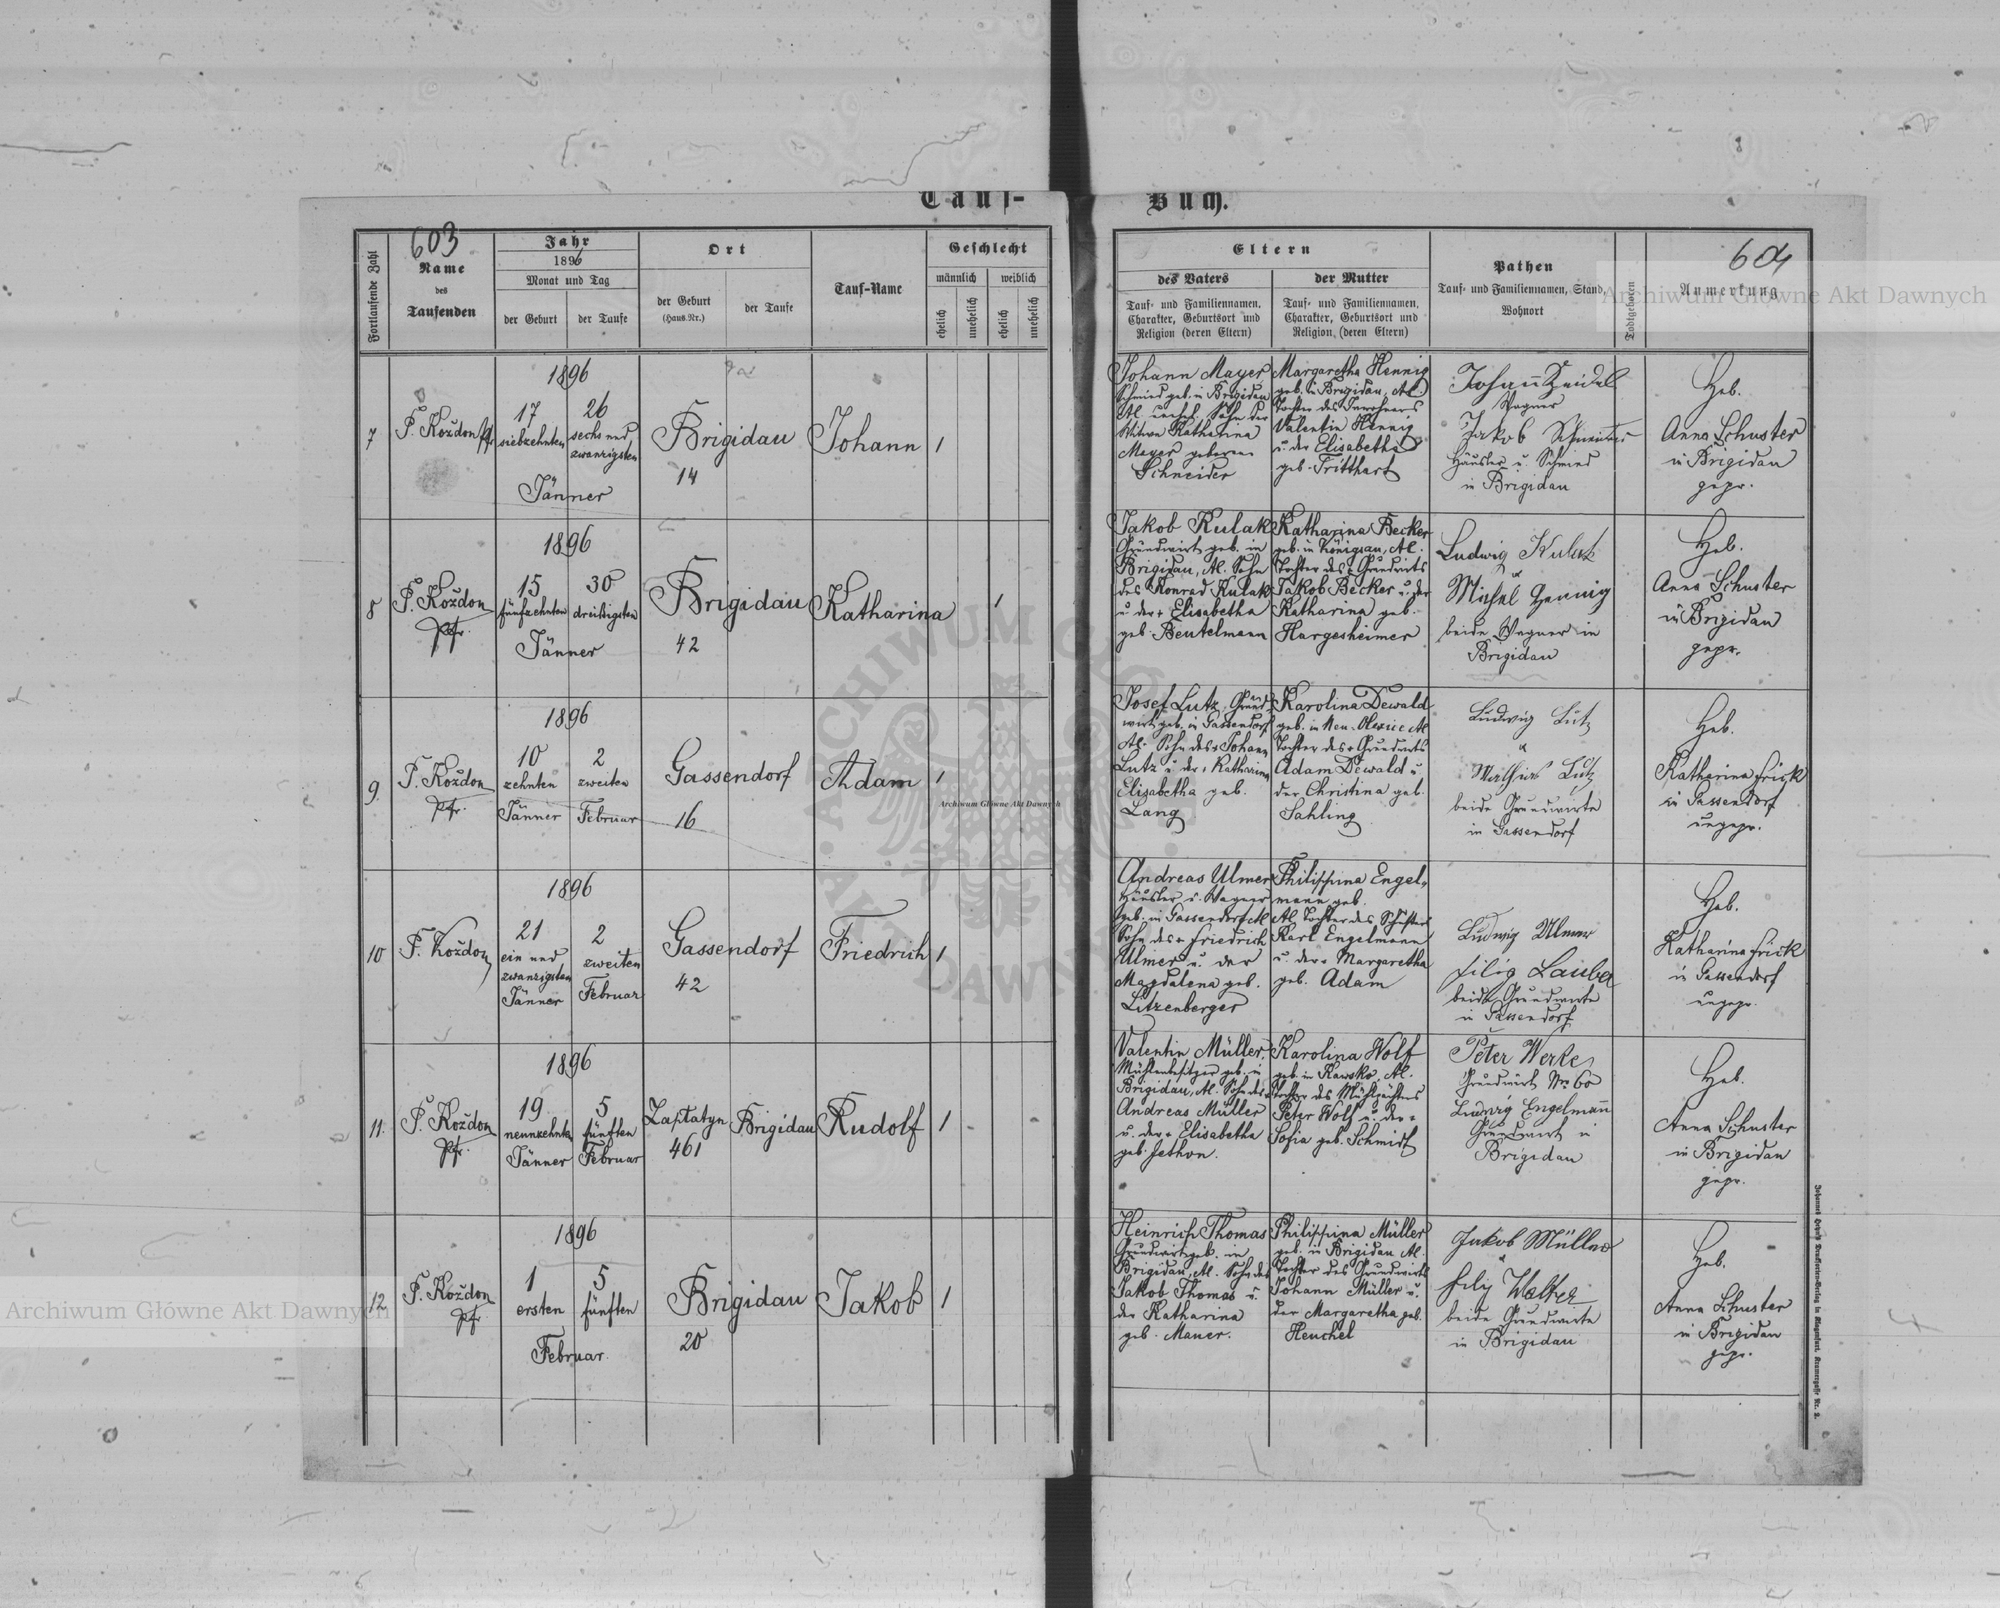 Tauf-
Buch.
603
Fortlaufende Zahl
Name
des
Taufenden
Jahr
1896
Monat und Tag
der Geburt
der Taufe
Ort
der Geburt
(Haus-Nr.)
der Taufe
Tauf-Name
Geschlecht
männlich
weiblich
ehelich
unehelich
ehelich
unehelich
Eltern
des Vaters
der Mutter
Tauf- und Familiennamen,
Charakter, Geburtsort und
Religion (deren Eltern)
Tauf- und Familiennamen,
Charakter, Geburtsort und
Religion, (deren Eltern)
Pathen
Tauf- und Familiennamen, Stand,
Wohnort
Todtgeboren
604
Anmerkung
7
P. Kożdon
1896
17
siebzehnten
26
sechs und
zwanzigsten
Jänner
Brigidau
14
Johann
1
Johann Mayer
Schmied geb. in Brigidau
Al. unehel. Sohn der
Witwe Katharina
Mayer geborene
Schneider
Margaretha Hennig
geb. in Brigidau, Al.
Tochter des Inwohners
Valentin Hennig
u. der Elisabetha
geb. Tritthart
Johann Zeidel
Wagner
Jakob Schneider
Häusler u. Schmied
in Brigidau
Heb.
Anna Schuster
in Brigidau
gepr.
8
P. Kożdon
Pfr.
1896
15
fünfzehnten
30
dreißigsten
Jänner
Brigidau
42
Katharina
1
Jakob Kulak
Grundwirt geb. in
Brigidau, Al. Sohn
des Konrad Kulak
u. der + Elisabetha
geb. Beutelmann
Katharina Becker
geb. in Königsau, Al.
Tochter des + Grundwirts
Jakob Becker u. der
Katharina geb.
Hargesheimer
Ludwig Kulak
u
Michel Hennig
beide Wagner in
Brigidau
Heb.
Anna Schuster
in Brigidau
gepr.
9.
P. Kożdon
Pfr.
1896
10
zehnten
Jänner
2
zweiten
Februar
Gassendorf
16
Adam
1
Josef Lutz, Grund-
wirt geb. in Gassendorf
Al. Sohn des + Johann
Lutz u. der + Katharina
Elisabetha geb.
Lang
Karolina Dewald
geb. in Neu-Olexice Al
Tochter des + Grundwirts
Adam Dewald u
der Christina geb.
Sahling
Ludwig Lutz
u
Mathias Lutz
beide Grundwirte
in Gassendorf
Heb.
Katharina Frisk
in Gassendorf
ungepr.
10
P. Kożdon
1896
21
ein und
zwanzigsten
Jänner
2
zweiten
Februar
Gassendorf
42
Friedrich
1
Andreas Ulmer
Häusler u. Wagner
geb. in Gassendorf Al
Sohn des + Friedrich
Ulmer u. der
Magdalena geb.
Litzenberger
Philippina Engel-
mann geb.
Al. Tochter des Schusters
Karl Engelmann
u. der + Margaretha
geb. Adam
Ludwig Ulmer
Filip Lauba
beide Grundwirte
in Gassendorf
Heb.
Katharina Frisk
in Gassendorf
ungepr.
11.
P. Kożdon
Pfr.
1896
19
neunzehnten
Jänner
5
fünften
Februar
Zaplatyn
461
Brigidau
Rudolf
1
Valentin Müller,
Mühlenbesitzer geb. in
Brigidau, Al. Sohn des +
Andreas Müller
u. der + Elisabetha
geb. Jethon.
Karolina Wolf
geb. in Kawsko, Al.
Tochter des Mühlpächters
Peter Wolf u. der +
Sofia geb. Schmidt
Peter Werle
Grundwirt No 60
Ludwig Engelmann
Grundwirt in
Brigidau
Heb.
Anna Schuster
in Brigidau
gepr.
12
P. Kożdon
Pfr.
1896
1
ersten
5
fünften
Februar.
Brigidau
20
Jakob
1
Heinrich Thomas
Grundwirt geb. in
Brigidau, Al. Sohn des
Jakob Thomas u.
der Katharina
geb. Mauer.
Philippina Müller
geb. in Brigidau Al.
Tochter des Grundwirts
Johann Müller u.
der Margaretha geb.
Henchel
Jakob Müller
Walther
beide Grundwirte
in Brigidau
Heb.
Anna Schuster
in Brigidau
gepr.
Archiwum Główne Akt Dawnych
Archiwum Główne Akt Dawnych
Archiwum Główne Akt Dawnych